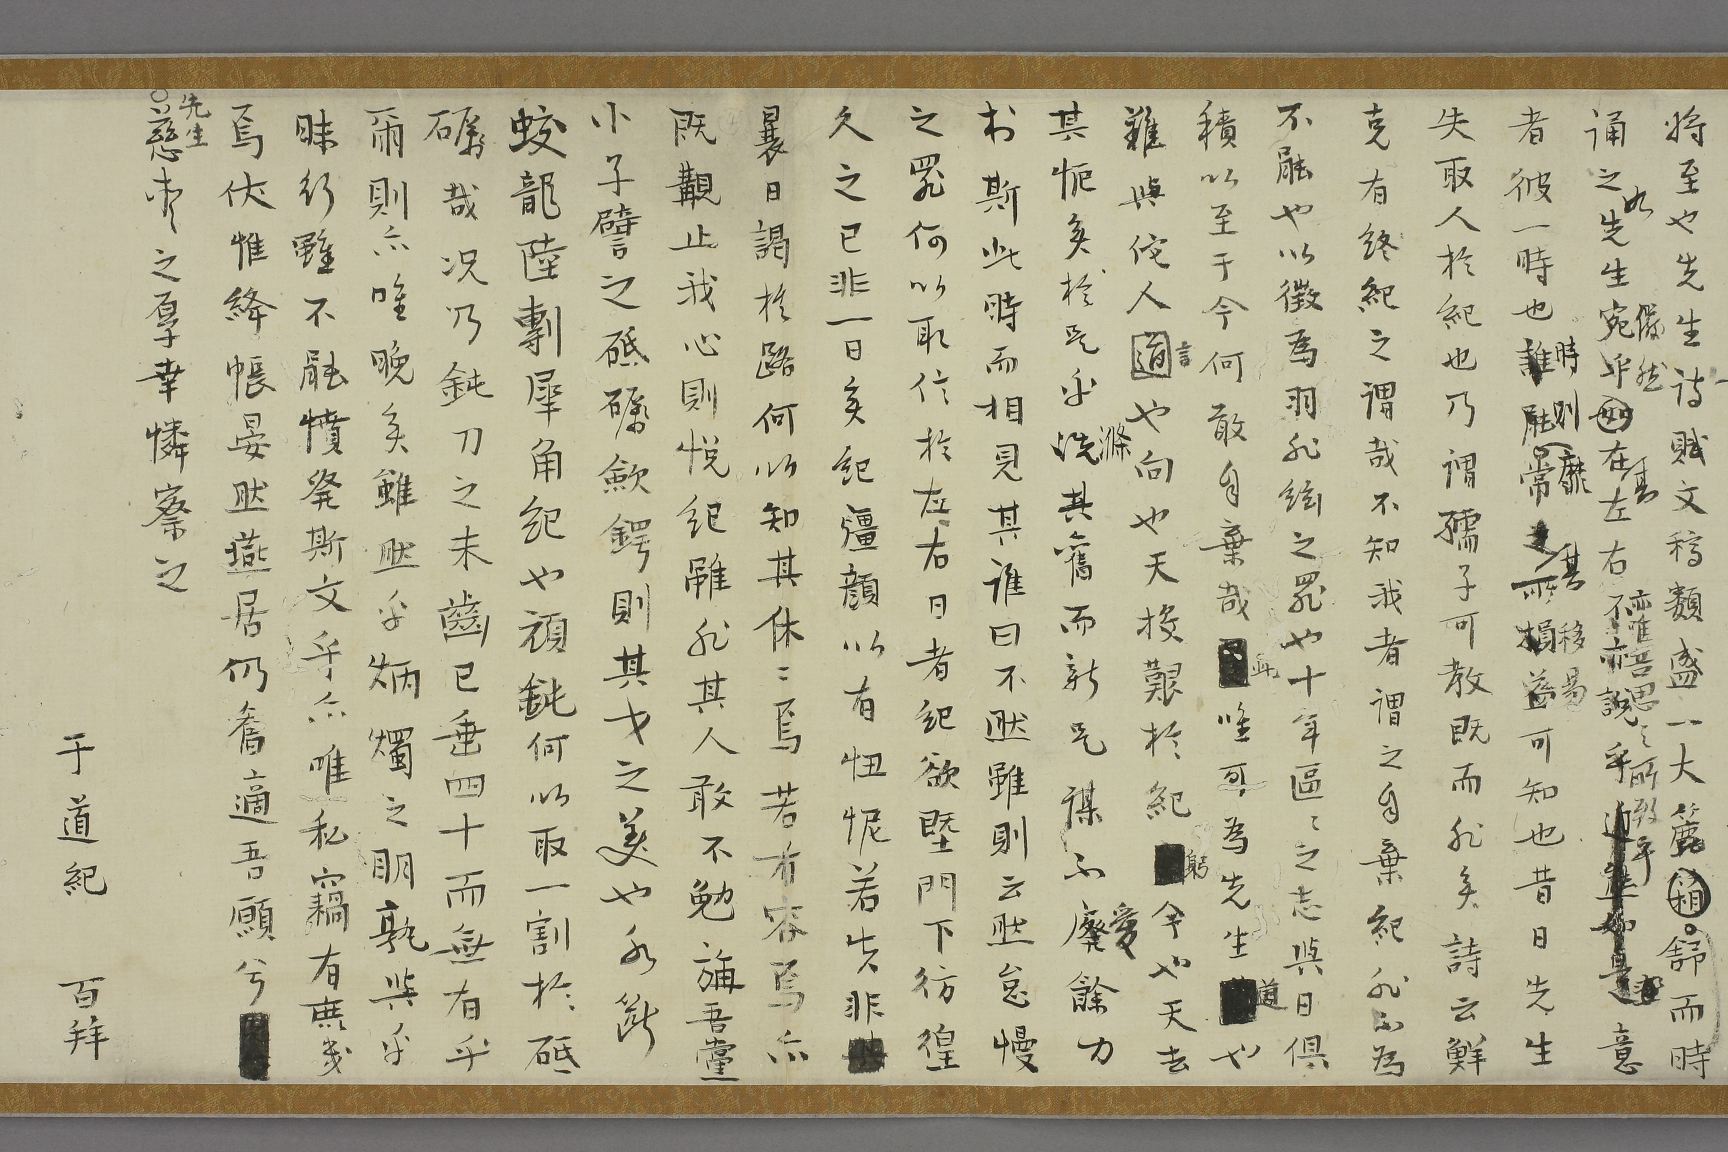 将至也先生詩賦文稿類盛一大簏箱舒而時
誦之先生宛如儼然在其左右不亦說乎意
者彼一時也時則靡常其移易可知也昔日先生
失取人於紀也乃謂孺子可教既而非矣詩云鮮
克有終紀之謂哉不知我者謂之自棄紀非不為
不能也以徵為羽非絃之罪也十年區〻之志與日俱
積以至于今何敢自棄哉唯可為先生道也
難與佗人言也向也天投艱於紀躬今也天去
其軛矣於是乎滌其舊而新是謀不愛餘力
於斯此時而相見其誰曰不然雖則云然怠慢
之罪何以取信於左右日者紀欲墍門下彷徨
久之已非一日矣紀彊顏以有忸怩若夫非
曩日謁於路何以知其休〻焉若有容焉亦
既覯止我心則悅紀雖非其人敢不勉旃吾黨
小子譬之砥礪歛鍔則其才之美也水斷
蛟龍陸剸犀角紀也頑鈍何以取一割於砥
礪哉況乃鈍刀之未齒已垂四十而無有乎
爾則亦唯晚矣雖然乎炳燭之明孰與乎
昧行雖不能憤發斯文乎亦唯私竊有庶幾
焉伏惟絳帳晏然燕居仍舊適吾願兮
先生慈惠之厚幸憐察之
于道紀 百拜